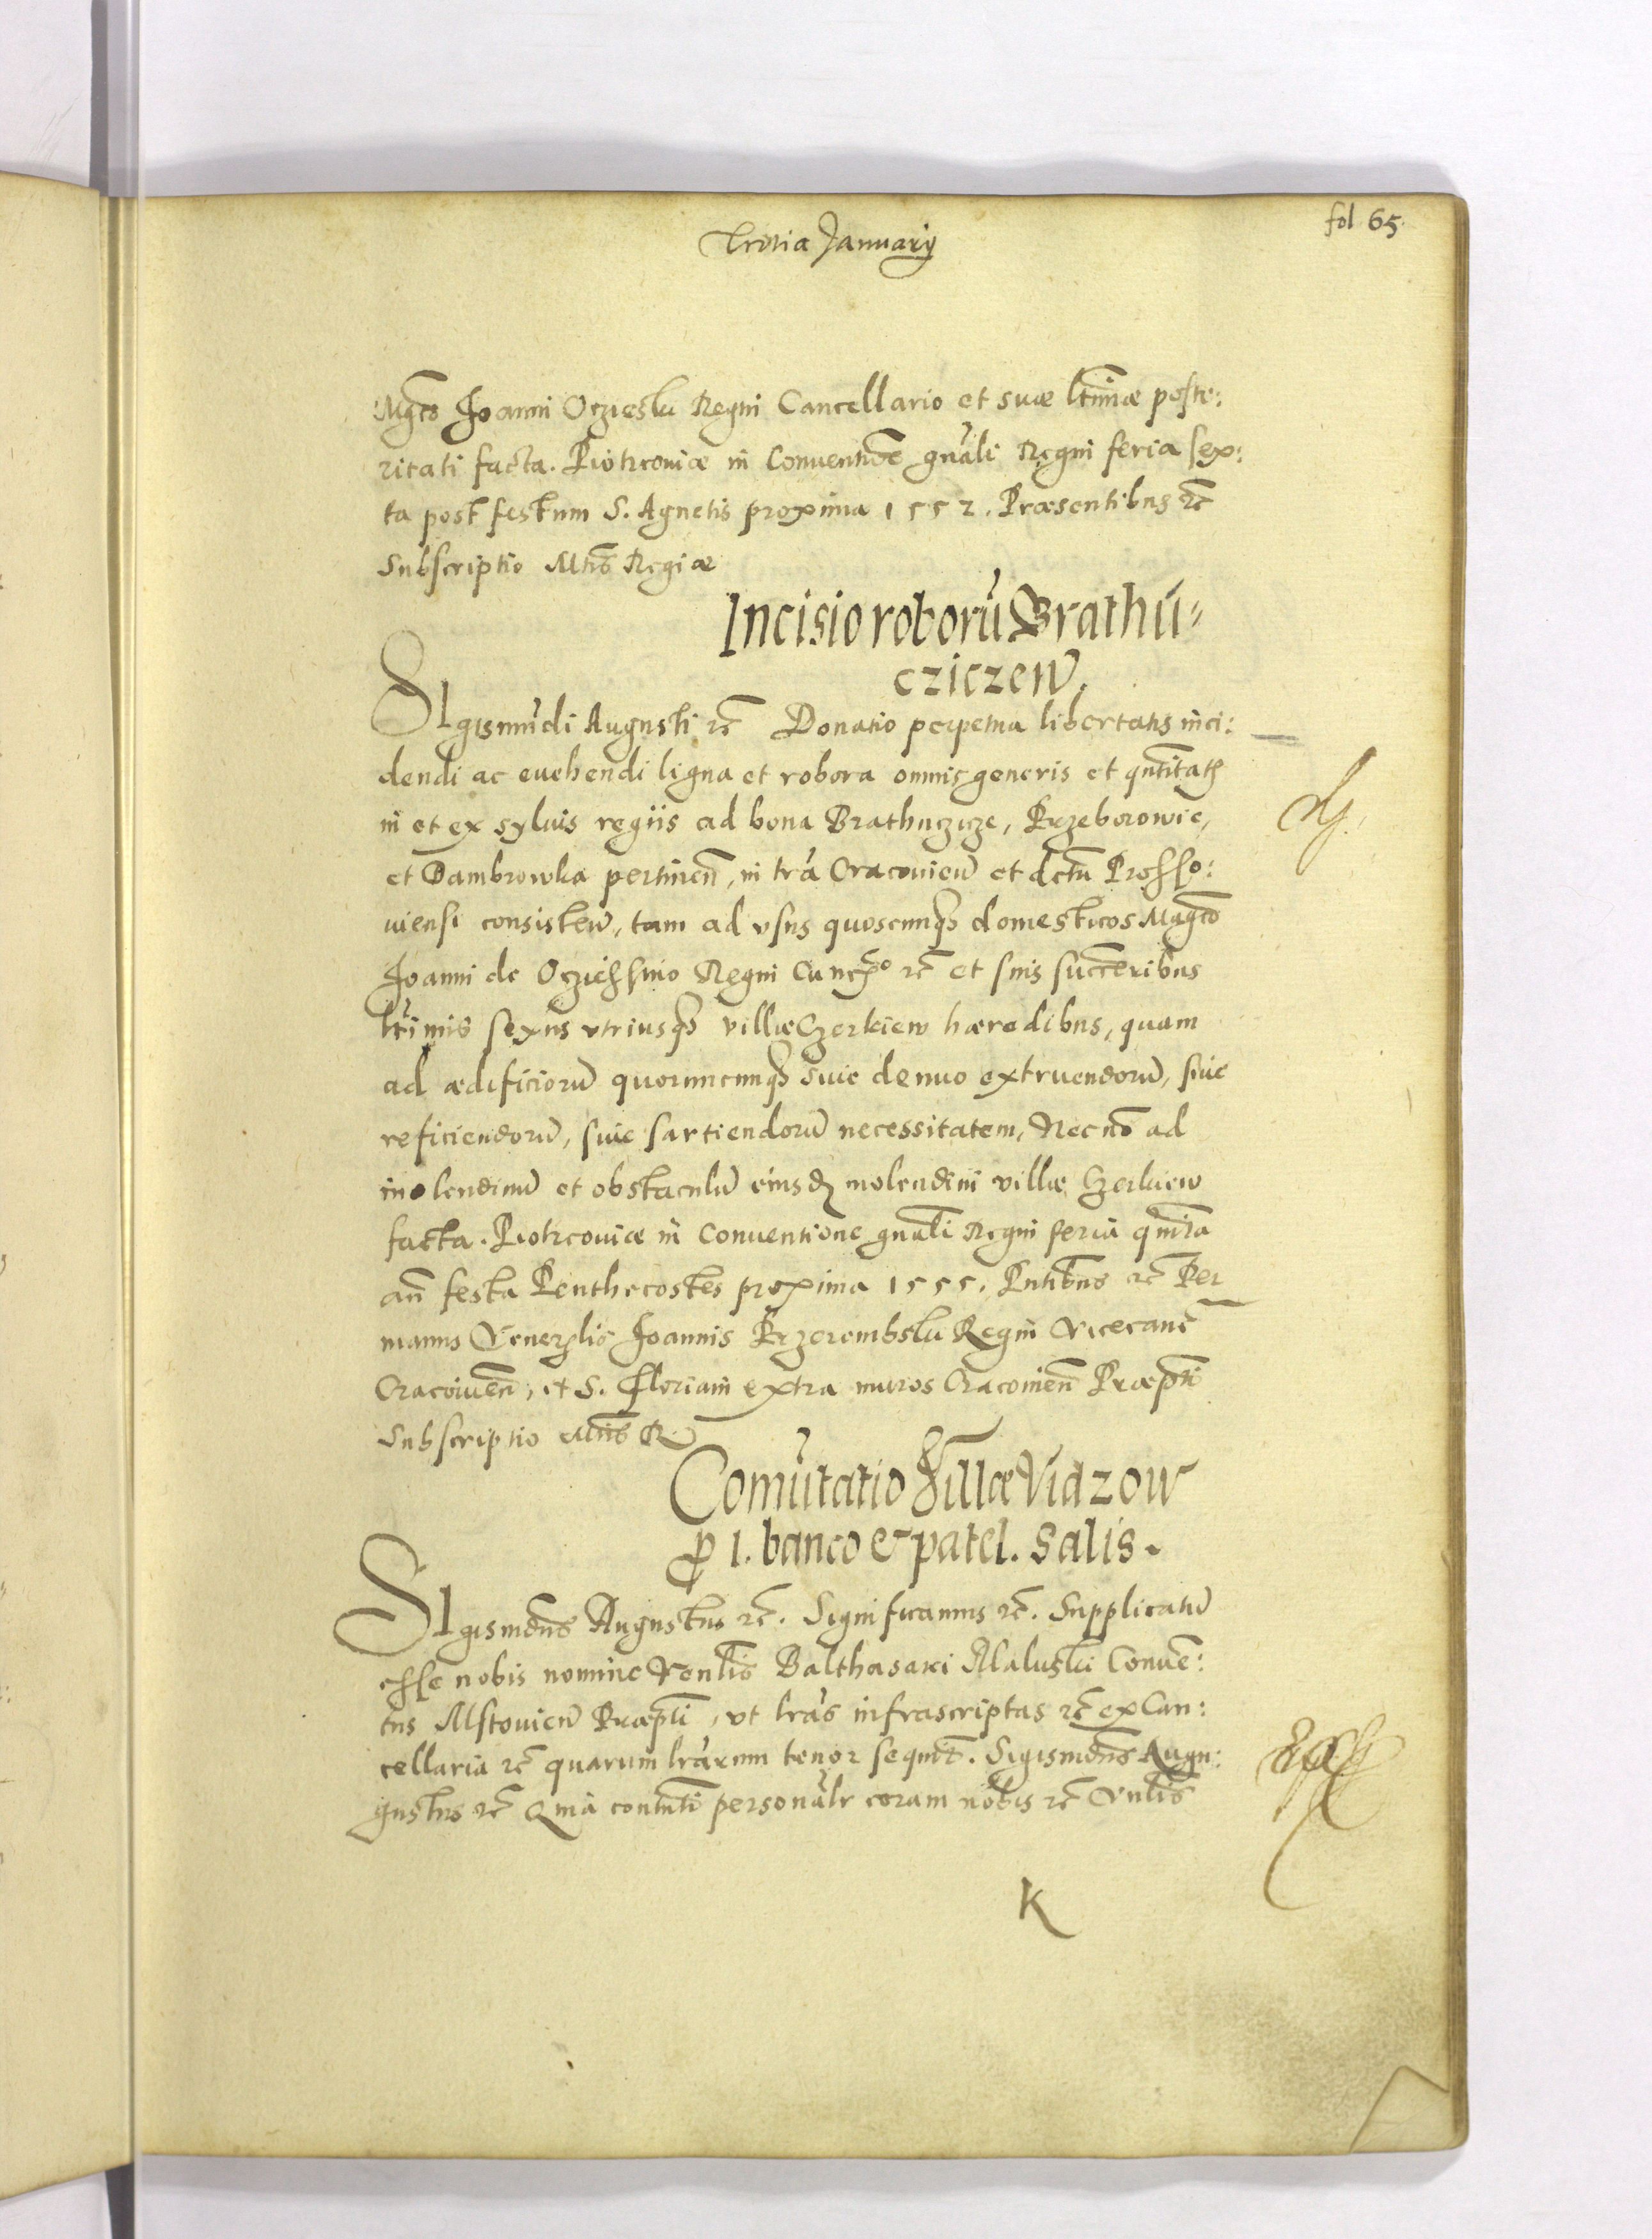 fol 65.
Tertia Januarij
Mgco Joanni Oczieski Regni Cancellario et suæ ltimæ poste:
ritati facta. Piotrcoviæ in Conventiõe gnãli Regni feria sex:
ta post festum S. Agnetis proxima 1552. Præsentibus rc̃
Subscriptio Mtis Regiæ
Incisio roborũ Brathu=
cziczen̄.
SIgismũdi Augusti rc̃ Donatio perpetua libertatis inci:
dendi ac euehendi ligna et robora omnis generis et qntitatis
in et ex syluis regiis ad bona Brathuczicze, Przeborowie,
et Dambrowka pertinen̄, in trã Cracouien̄ et dctũ Prosso:
uiensi consisten̄, tam ad vsus quoscunq3 domesticos Magco
Joanni de Ocziessino Regni Cancrio rc̃ et suis succeribus
ltimis sexus vtriusq3 villæ Czerkiew hæredibus, quam
ad ædificiorũ quorumcunq3 siue denuo extruendorũ, siue
reficiendorũ, siue sartiendorũ necessitatem, Necnõ ad
molendinũ et obstaculũ eiusdẽ molendini villæ Czerkiew
facta. Piotrcoviæ in Conventione gnãli Regni feria quinta
an̄ festa Penthecostes proxima 1555. Pntibus rc̃ Per
manus Venerlis Joannis Przerembski Regni Vicecanc̃
Cracovien̄, et S. Floriani extra muros Cracouien̄ Præpti
Subscriptio Mtis R.
Comũtatio Villæ Viazow
ꝑ 1. banco & patel. salis.
SIgismdus Augustus rc̃. Significamus rc̃. Supplicatũ
esse nobis nomine Venlis Balthasari Maluski Conuen:
tus Mstouien̄ Præpti, vt lrãs infrascriptas rc̃ ex Can:
cellaria rc̃ quarum lrãrum tenor sequit̃. Sigismdus Augu:
gustus rc̃ Quia contuti personãlr coram nobis rc̃ Vnlis
K